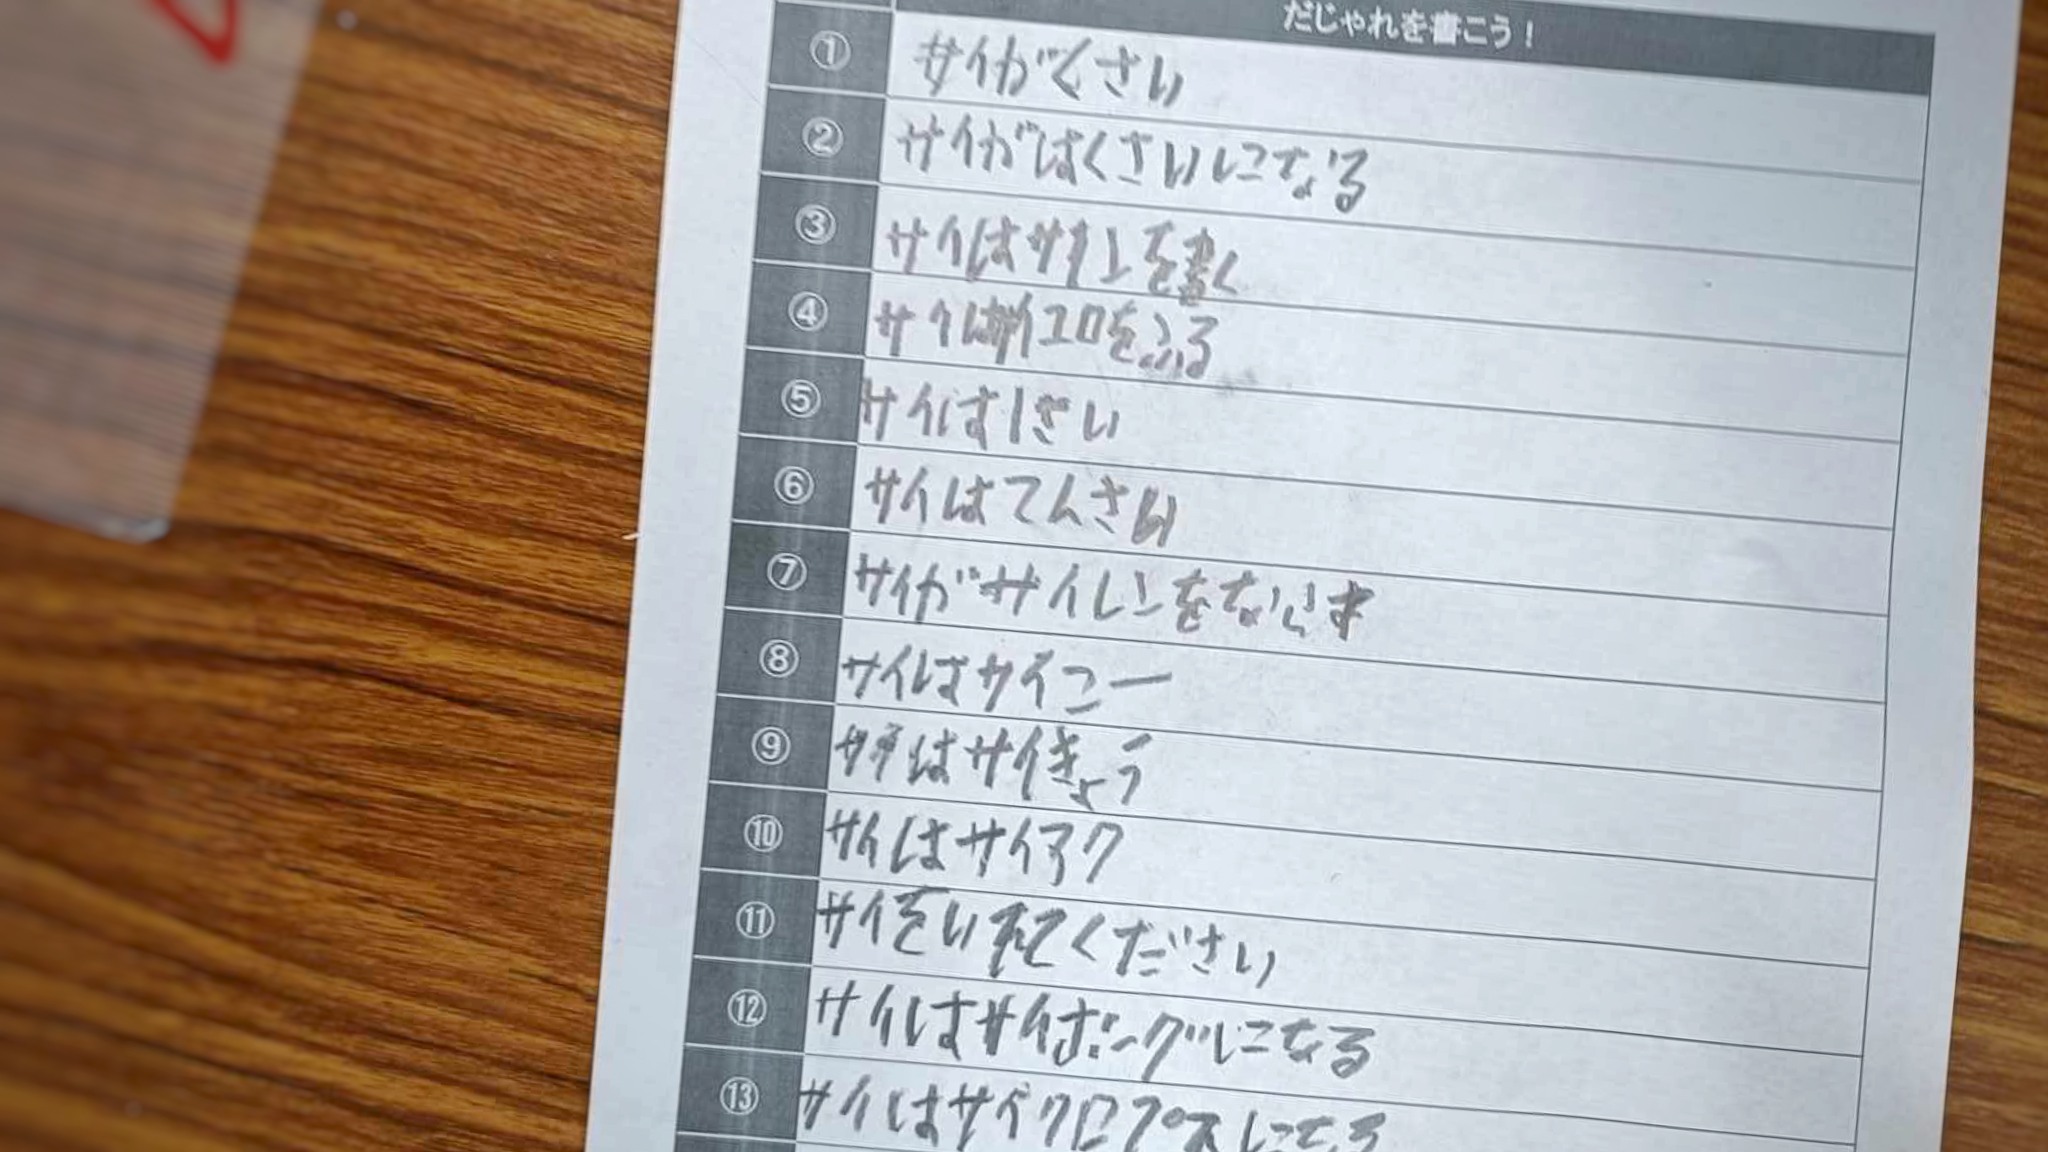 だじゃれを書こう！
① サイがくさい
② サイがはくさいになる
③ サイはサインを書く
④ サイはサイコロをふる
⑤ サイは1さい
⑥ サイはてんさい
⑦ サイがサイレンをならす
⑧ サイはサイコー
⑨ サイはサイきょう
⑩ サイはサイアク
⑪ サイをいれてください
⑫ サイはサイボーグになる
⑬ サイはサイクロプスになる